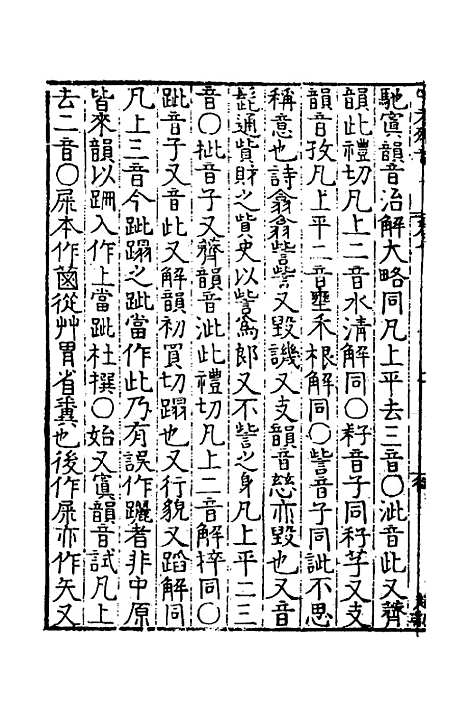 馳寘韻音治解大略同凡上平去三音〇泚音此又薺
韻此禮切凡上二音水清解同〇耔音子同秄芓又支
韻音孜凡上平二音壅禾根解同〇訾音子同訿不思
稱意也詩翕翕訾訾又毀譏又支韻音慈亦毀也又音
髭通貲財之貲史以訾為郎又不訾之身凡上平二三
音〇批音子又薺韻音泚此禮切凡上二音解捽同〇
跐音子又音此又解韻初買切蹋也又行貌又蹈解同
凡上三音今跐蹋之跐當作此乃有誤作躧者非中原
皆來韻以跚入作上當跐杜撰〇始又寘韻音試凡上
去二音〇屎本作菡從艸胃省糞也後作屎亦作矢又